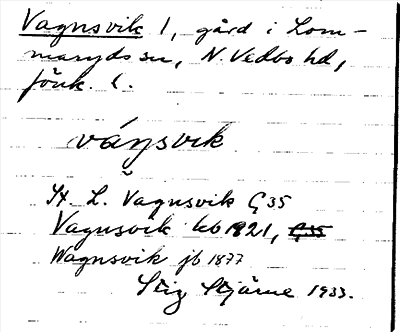 Vagnsvik 1, gård i Lom-
maryds sn, N. Vedbo hd,
Jönk. l.
vágsvik
St. L. Vagnsvik G 35
Vagnsvik kb 1821, G35
Wagnsvik jb 1877
Stig Stjärne 1933.